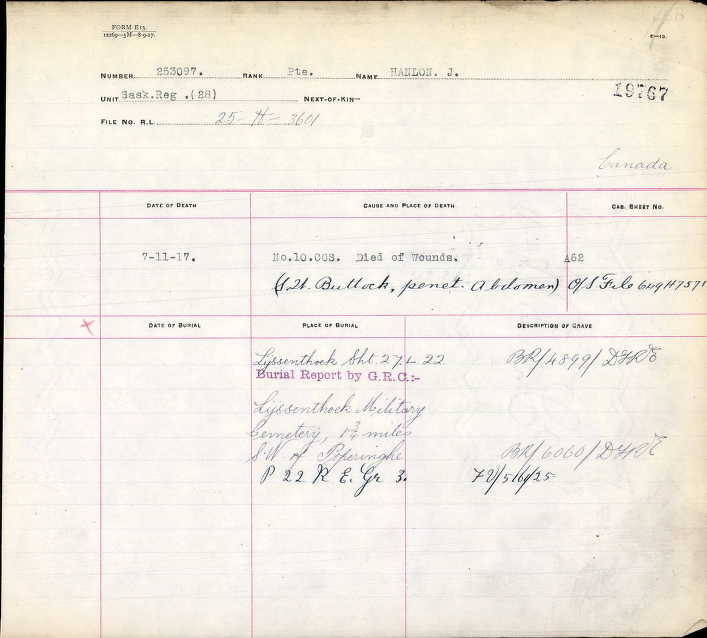 FORM E13.
12269—5M—8-9-17.
E—13.
NUMBER 253097. RANK Pte. NAME HANLON. J.
UNIT Sask.Reg .(28) NEXT-OF-KIN—
19767
FILE NO. R.L. 25-H-3601
Canada
DATE OF DEATH CAUSE AND PLACE OF DEATH CAS. SHEET NO.
7-11-17. No.10.CCS. Died of Wounds. A62
penet. Abdomen) O/S File 649H7571
DATE OF BURIAL PLACE OF BURIAL DESCRIPTION OF GRAVE
Lyssenthoek Sht. 27 L 22 BR/4899/
Burial Report by G.R.C:-
Lijssenthoek Military
Cemetery, 1¾ miles
S.W of Poperinghe BR/6060/
P 22 R E. Gr 3.